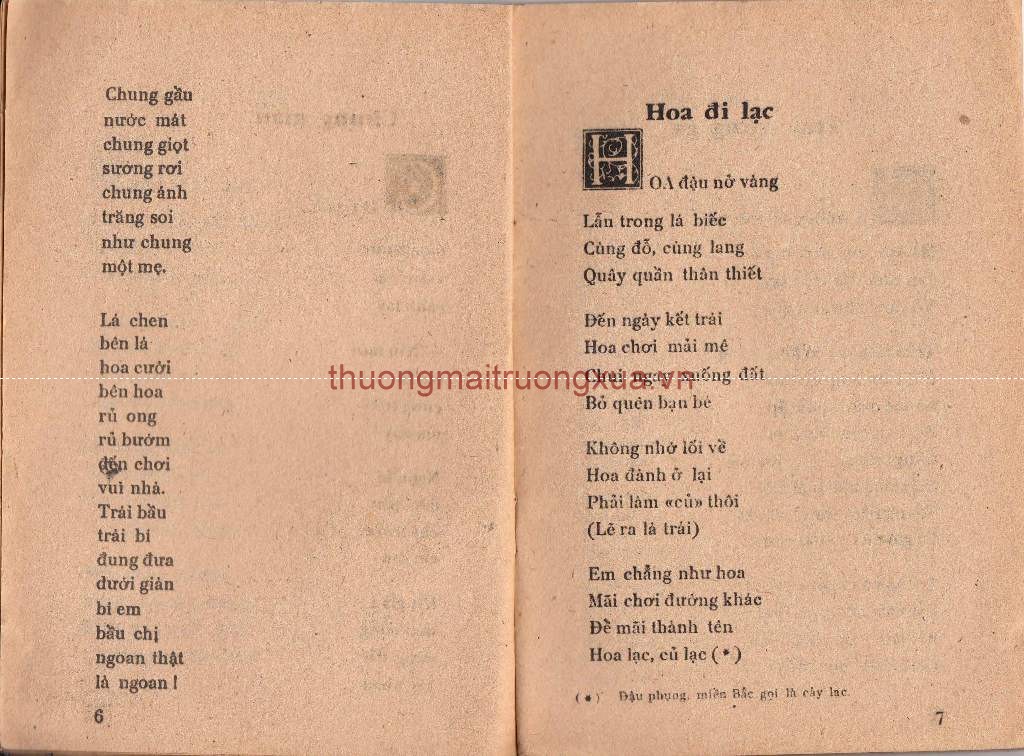 Chung gầu
nước mát
chung giọt
sương rơi
chung ánh
trăng soi
như chung
một mẹ.
Lá chen
bên lá
hoa cười
bên hoa
rủ ong
rủ bướm
đến chơi
vui nhà.
Trái bầu
trái bí
đung đưa
dưới giàn
bí em
bầu chị
ngoan thật
là ngoan !
6
Hoa đi lạc
HOA đậu nở vàng
Lẫn trong lá biếc
Cùng đỗ, cùng lang
Quây quần thân thiết
Đến ngày kết trái
Hoa chơi mải mê
Chúi ngay xuống đất
Bỏ quên bạn bè
Không nhớ lối về
Hoa đành ở lại
Phải làm «củ» thôi
(Lẽ ra là trái)
Em chẳng như hoa
Mãi chơi đường khác
Để mãi thành tên
Hoa lạc, củ lạc (*)
(*) Đậu phụng, miền Bắc gọi là cây lạc.
7
thuongmaitruongxua.vn